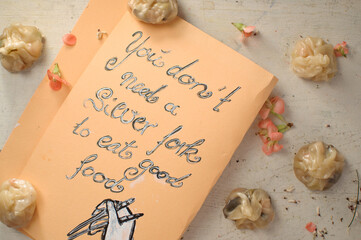 You don't
need a
Silver fork
to eat good
food